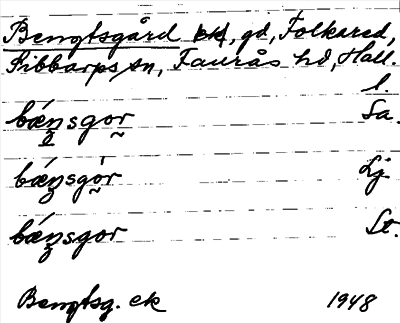 Bengtsgård ek, gd, Folkared,
Sibbarps sn, Faurås hd, Hall.
l.
bǽn̥sgor Sa.
bǽŋsgòr Lj.
bǽŋsgor St.
Bengtsg. ek 1948